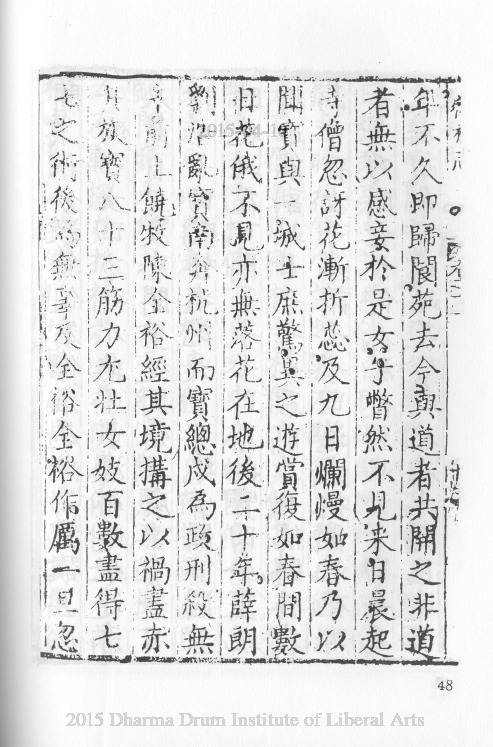 年不久即歸閬苑去今與道者共開之非道
者無以感妾於是女子瞥然不見来日晨起
寺僧忽訝花漸折蕊及九日爛熳如春乃以
聞寶與一城士庶驚異之遊賞復如春間數
日花俄不見亦無落花在地後二十年薛朗
劉浩亂寶南奔杭州而寶總成為政刑殺無
辜前上饒牧陳全裕經其境搆之以禍盡赤
其族寶八十三筋力尤壯女妓百數盡得七
七之術後為無辜及全裕全裕作厲一旦忽
48
2015 Dharma Drum Institute of Liberal Arts